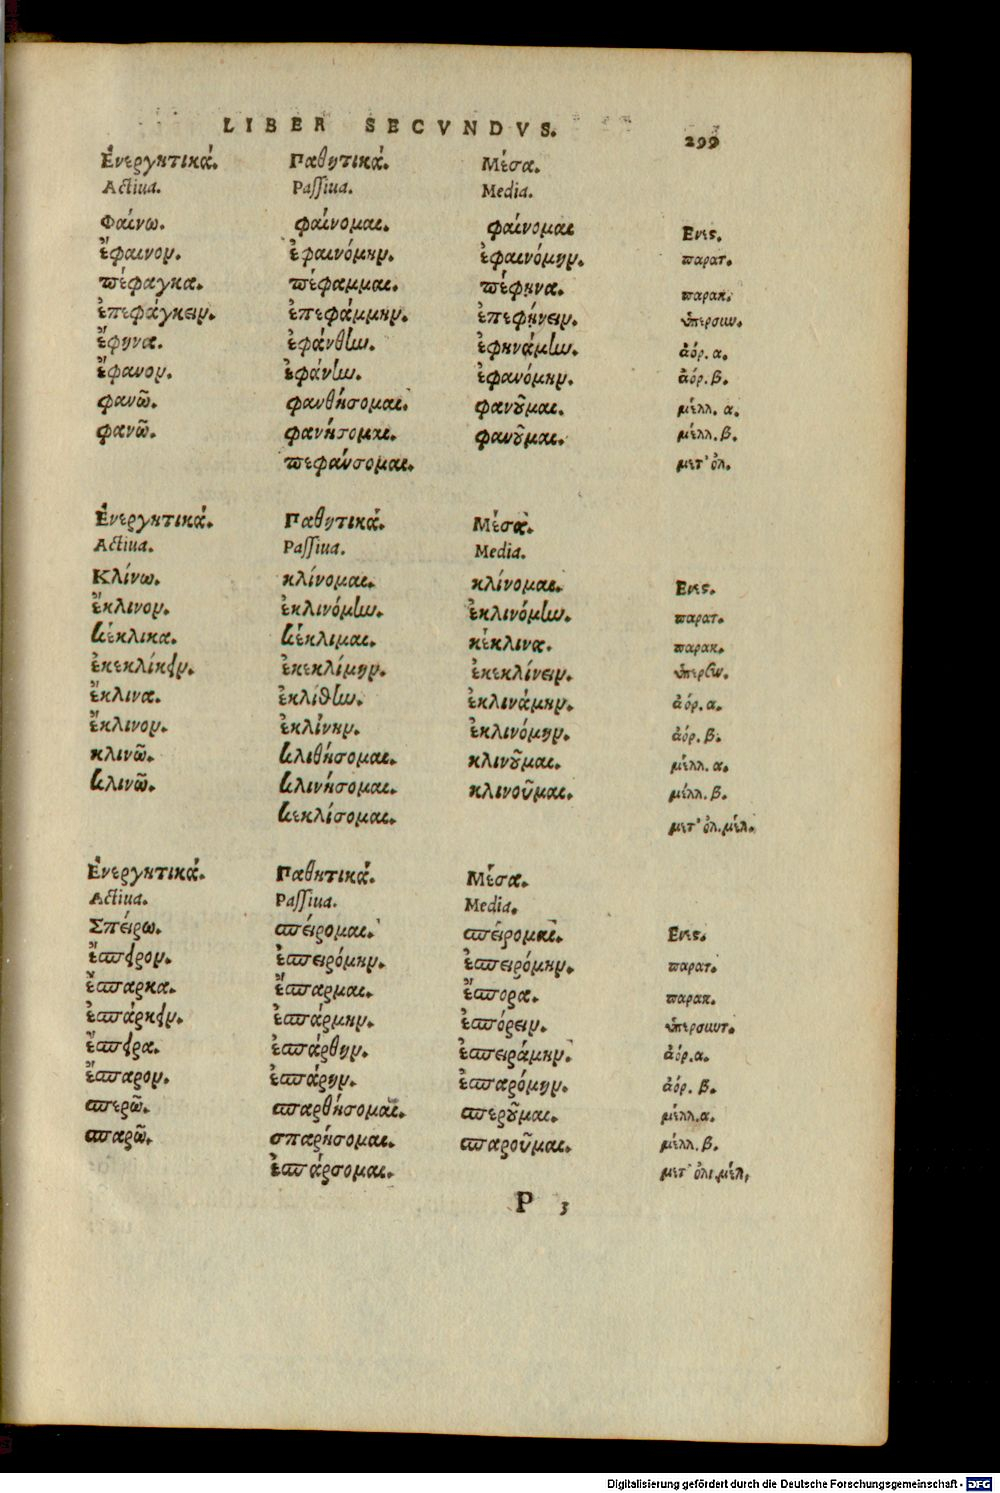 LIBER SECVNDVS. 299
Ἐνεργητικά. Παθητικά. Μέσα.
Actiua. Passiua. Media.
Φαίνω. φαίνομαι. φαίνομαι Ενες.
ἔφαινον. ἐφαινόμην. ἐφαινόμην. παρατ.
πέφαγκα. πέφαμμαι. πέφηνα. παρακ.
ἐπεφάγκειν. ἐπεφάμμην. ἐπεφήνειν. ὑπερσυν.
ἔφηνα. ἐφάνθην. ἐφηνάμην. ἀόρ. α.
ἔφανον. ἐφάνην. ἐφανόμην. ἀόρ. β.
φανῶ. φανθήσομαι. φανοῦμαι. μέλλ. α.
φανῶ. φανήσομαι. φανοῦμαι. μέλλ. β.
πεφάνσομαι. μετ' ὀλ.
Ἐνεργητικά. Παθητικά. Μέσα.
Actiua. Passiua. Media.
Κλίνω. κλίνομαι. κλίνομαι. Ενες.
ἔκλινον. ἐκλινόμην. ἐκλινόμην. παρατ.
κέκλικα. κέκλιμαι. κέκλινα. παρακ.
ἐκεκλίκειν. ἐκεκλίμην. ἐκεκλίνειν. ὑπερσυν.
ἔκλινα. ἐκλίθην. ἐκλινάμην. ἀόρ. α.
ἔκλινον. ἐκλίνην. ἐκλινόμην. ἀόρ. β.
κλινῶ. κλιθήσομαι. κλινοῦμαι. μέλλ. α.
κλινῶ. κλινήσομαι. κλινοῦμαι. μέλλ. β.
κεκλίσομαι. μετ' ὀλ. μέλ.
Ἐνεργητικά. Παθητικά. Μέσα.
Actiua. Passiua. Media.
Σπείρω. σπείρομαι. σπείρομαι. Ενες.
ἔσπειρον. ἐσπειρόμην. ἐσπειρόμην. παρατ.
ἔσπαρκα. ἔσπαρμαι. ἔσπορα. παρακ.
ἐσπάρκειν. ἐσπάρμην. ἐσπόρειν. ὑπερσυντ.
ἔσπειρα. ἐσπάρθην. ἐσπειράμην. ἀόρ. α.
ἔσπαρον. ἐσπάρην. ἐσπαρόμην. ἀόρ. β.
σπερῶ. σπαρθήσομαι. σπεροῦμαι. μέλλ. α.
σπαρῶ. σπαρήσομαι. σπαροῦμαι. μέλλ. β.
ἐσπάρσομαι. μετ' ὀλι. μέλ.
P 3
Digitalisierung gefördert durch die Deutsche Forschungsgemeinschaft - DFG